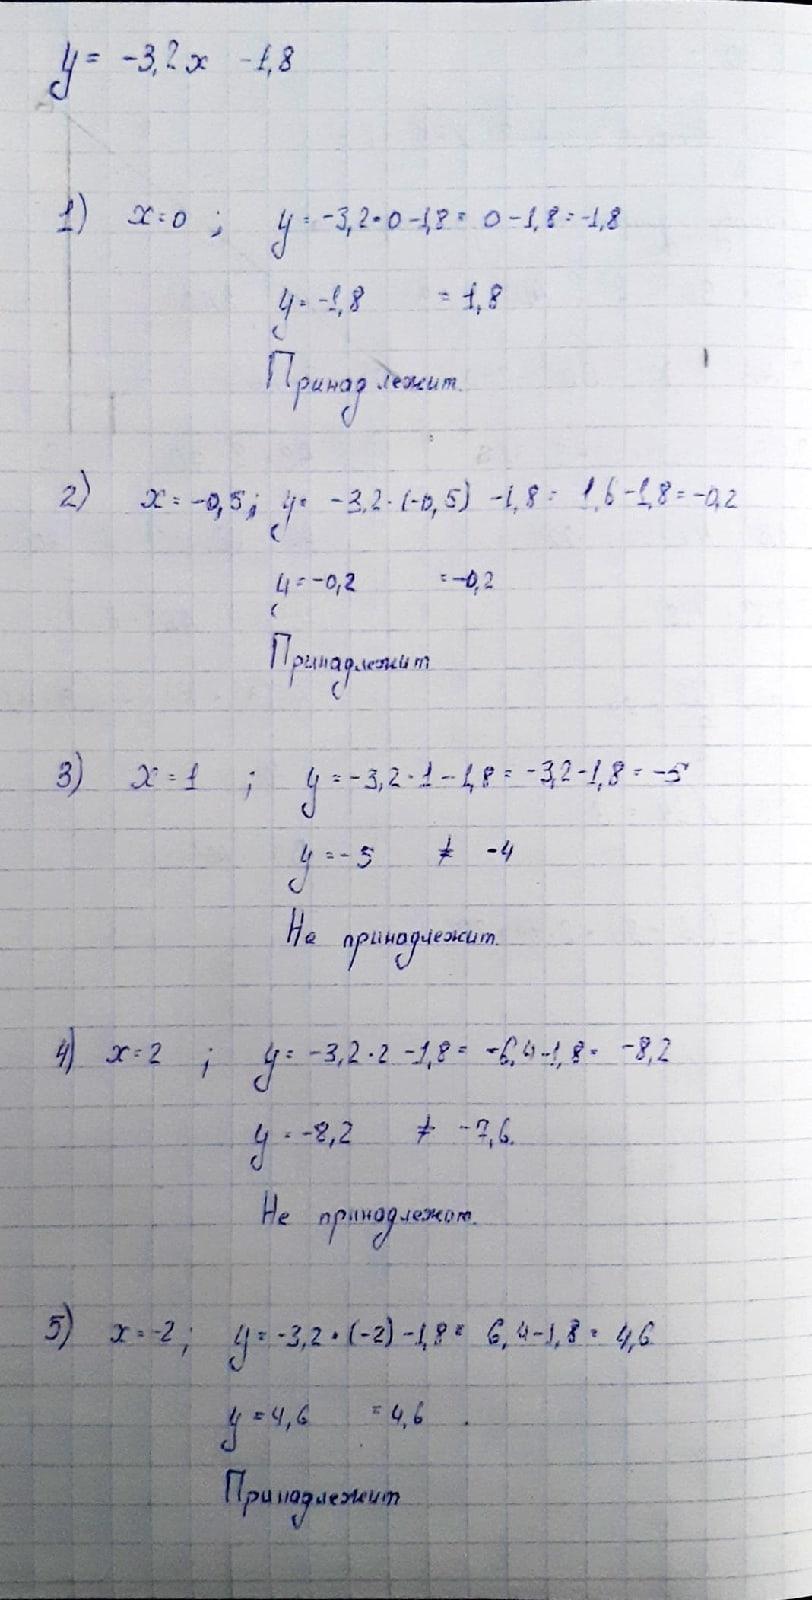 y = -3,2x -1,8
1) x=0 ; y = -3,2·0 -1,8 = 0 -1,8 = -1,8
y = -1,8 = 1,8
Принадлежит.
2) x = -0,5; y = -3,2·(-0,5) -1,8 = 1,6-1,8 = -0,2
y = -0,2 = -0,2
Принадлежит
3) x = 1 ; y = -3,2·1 -1,8 = -3,2-1,8 = -5
y = -5 ≠ -4
Не принадлежит.
4) x=2 ; y = -3,2·2 -1,8 = -6,4-1,8 = -8,2
y = -8,2 ≠ -7,6.
Не принадлежит.
5) x = -2; y = -3,2·(-2) -1,8 = 6,4-1,8 = 4,6
y = 4,6 = 4,6.
Принадлежит